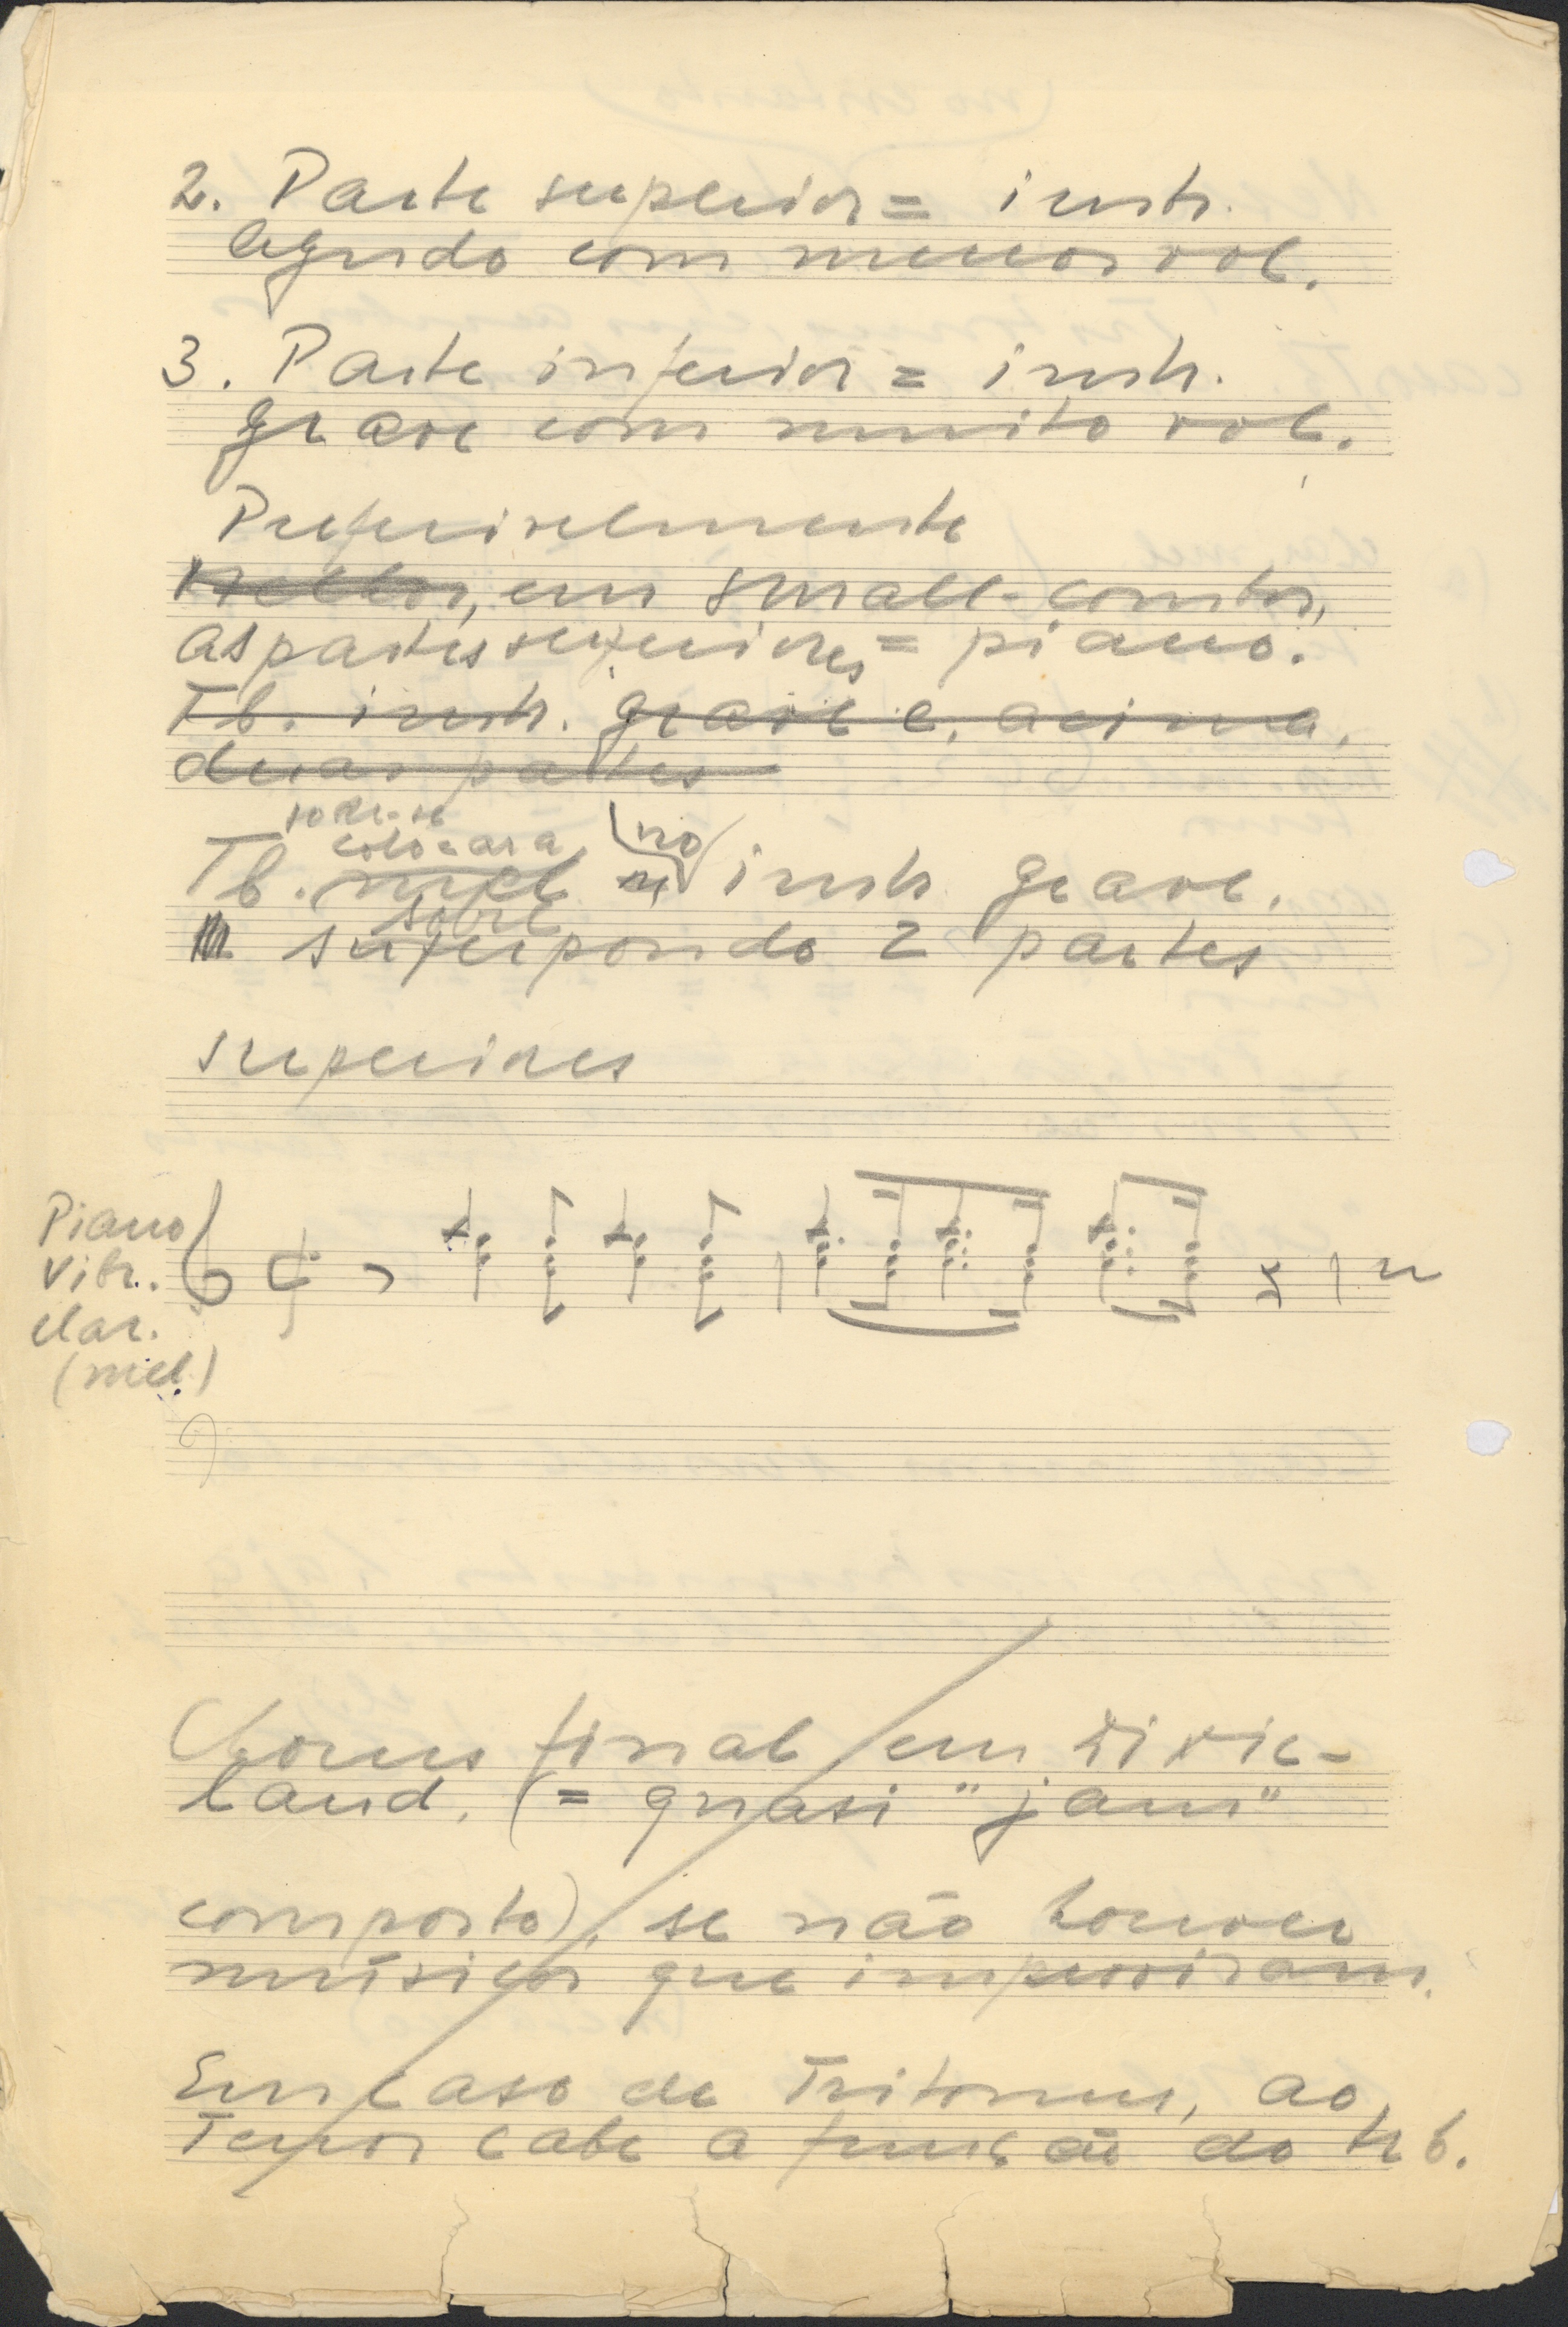 2. Parte superior = instr.
agudo com menor vol.
3. Parte inferior = instr.
grave com muito vol.
Preferivelmente
Melhor, em small-combos,
as partes superiores = piano.
Tb. instr. grave e, acima,
duas partes
pode-se
colocar a no
Tb. mel instr. grave,
sobre
superpondo 2 partes
superiores
Piano
Vibr.
Clar.
(mel.)
Chorus final em Dixie-
land. (= quasi "jam"
composto), se não houver
músicos que improvisam.
Em caso de Tritonus, ao
Tenor cabe a função do trb.